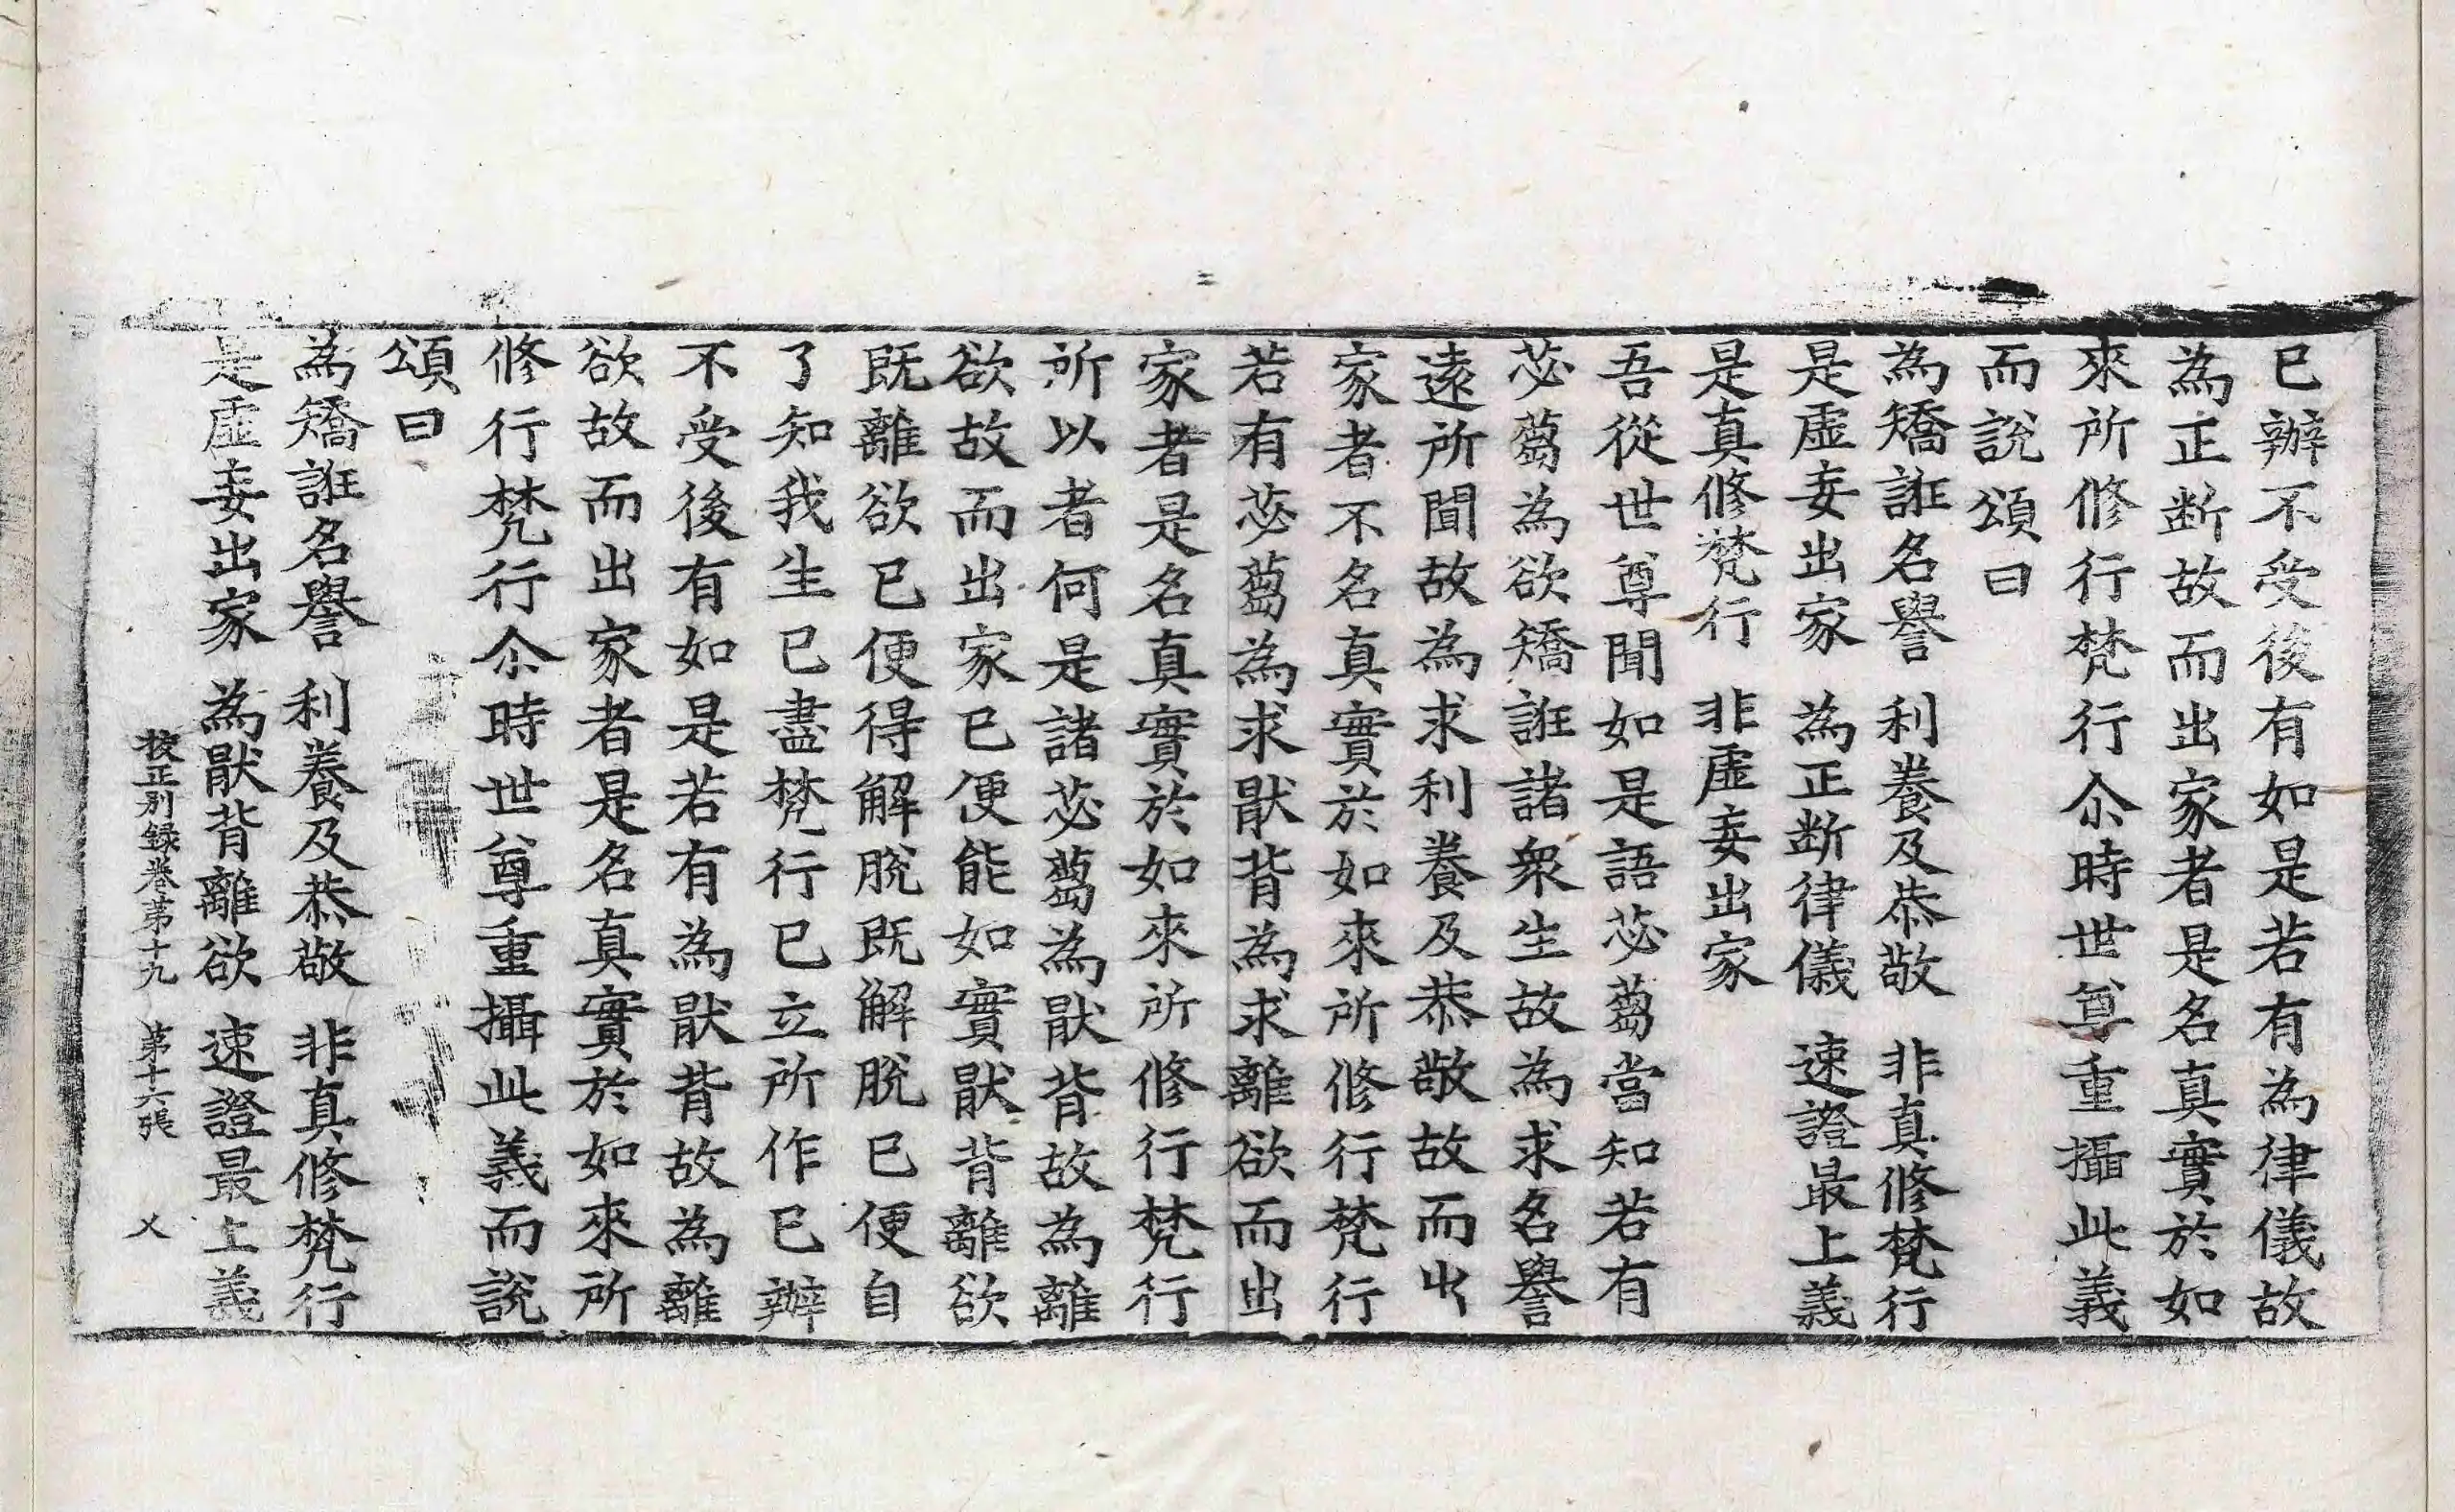 已辦不受後有如是若有為律儀故
為正断故而出家者是名真實於如
來所修行梵行尒時世尊重攝此義
而說頌曰
為矯誑名譽　利養及恭敬　非真修梵行
是虛妄出家　為正断律儀　速證最上義
是真修梵行　非虛妄出家
吾從世尊聞如是語苾蒭當知若有
苾蒭為欲矯誑諸衆生故為求名譽
遠所聞故為求利養及恭敬故而出
家者不名真實於如來所修行梵行
若有苾蒭為求猒背為求離欲而出
家者是名真實於如來所修行梵行
所以者何是諸苾蒭為猒背故為離
欲故而出家已便能如實猒背離欲
既離欲已便得解脫既解脫已便自
了知我生已盡梵行已立所作已辦
不受後有如是若有為猒背故為離
欲故而出家者是名真實於如來所
修行梵行尒時世尊重攝此義而說
頌曰
為矯誑名譽　利養及恭敬　非真修梵行
是虛妄出家　為猒背離欲　速證最上義
校正別録卷苐十九　苐十六張　乂